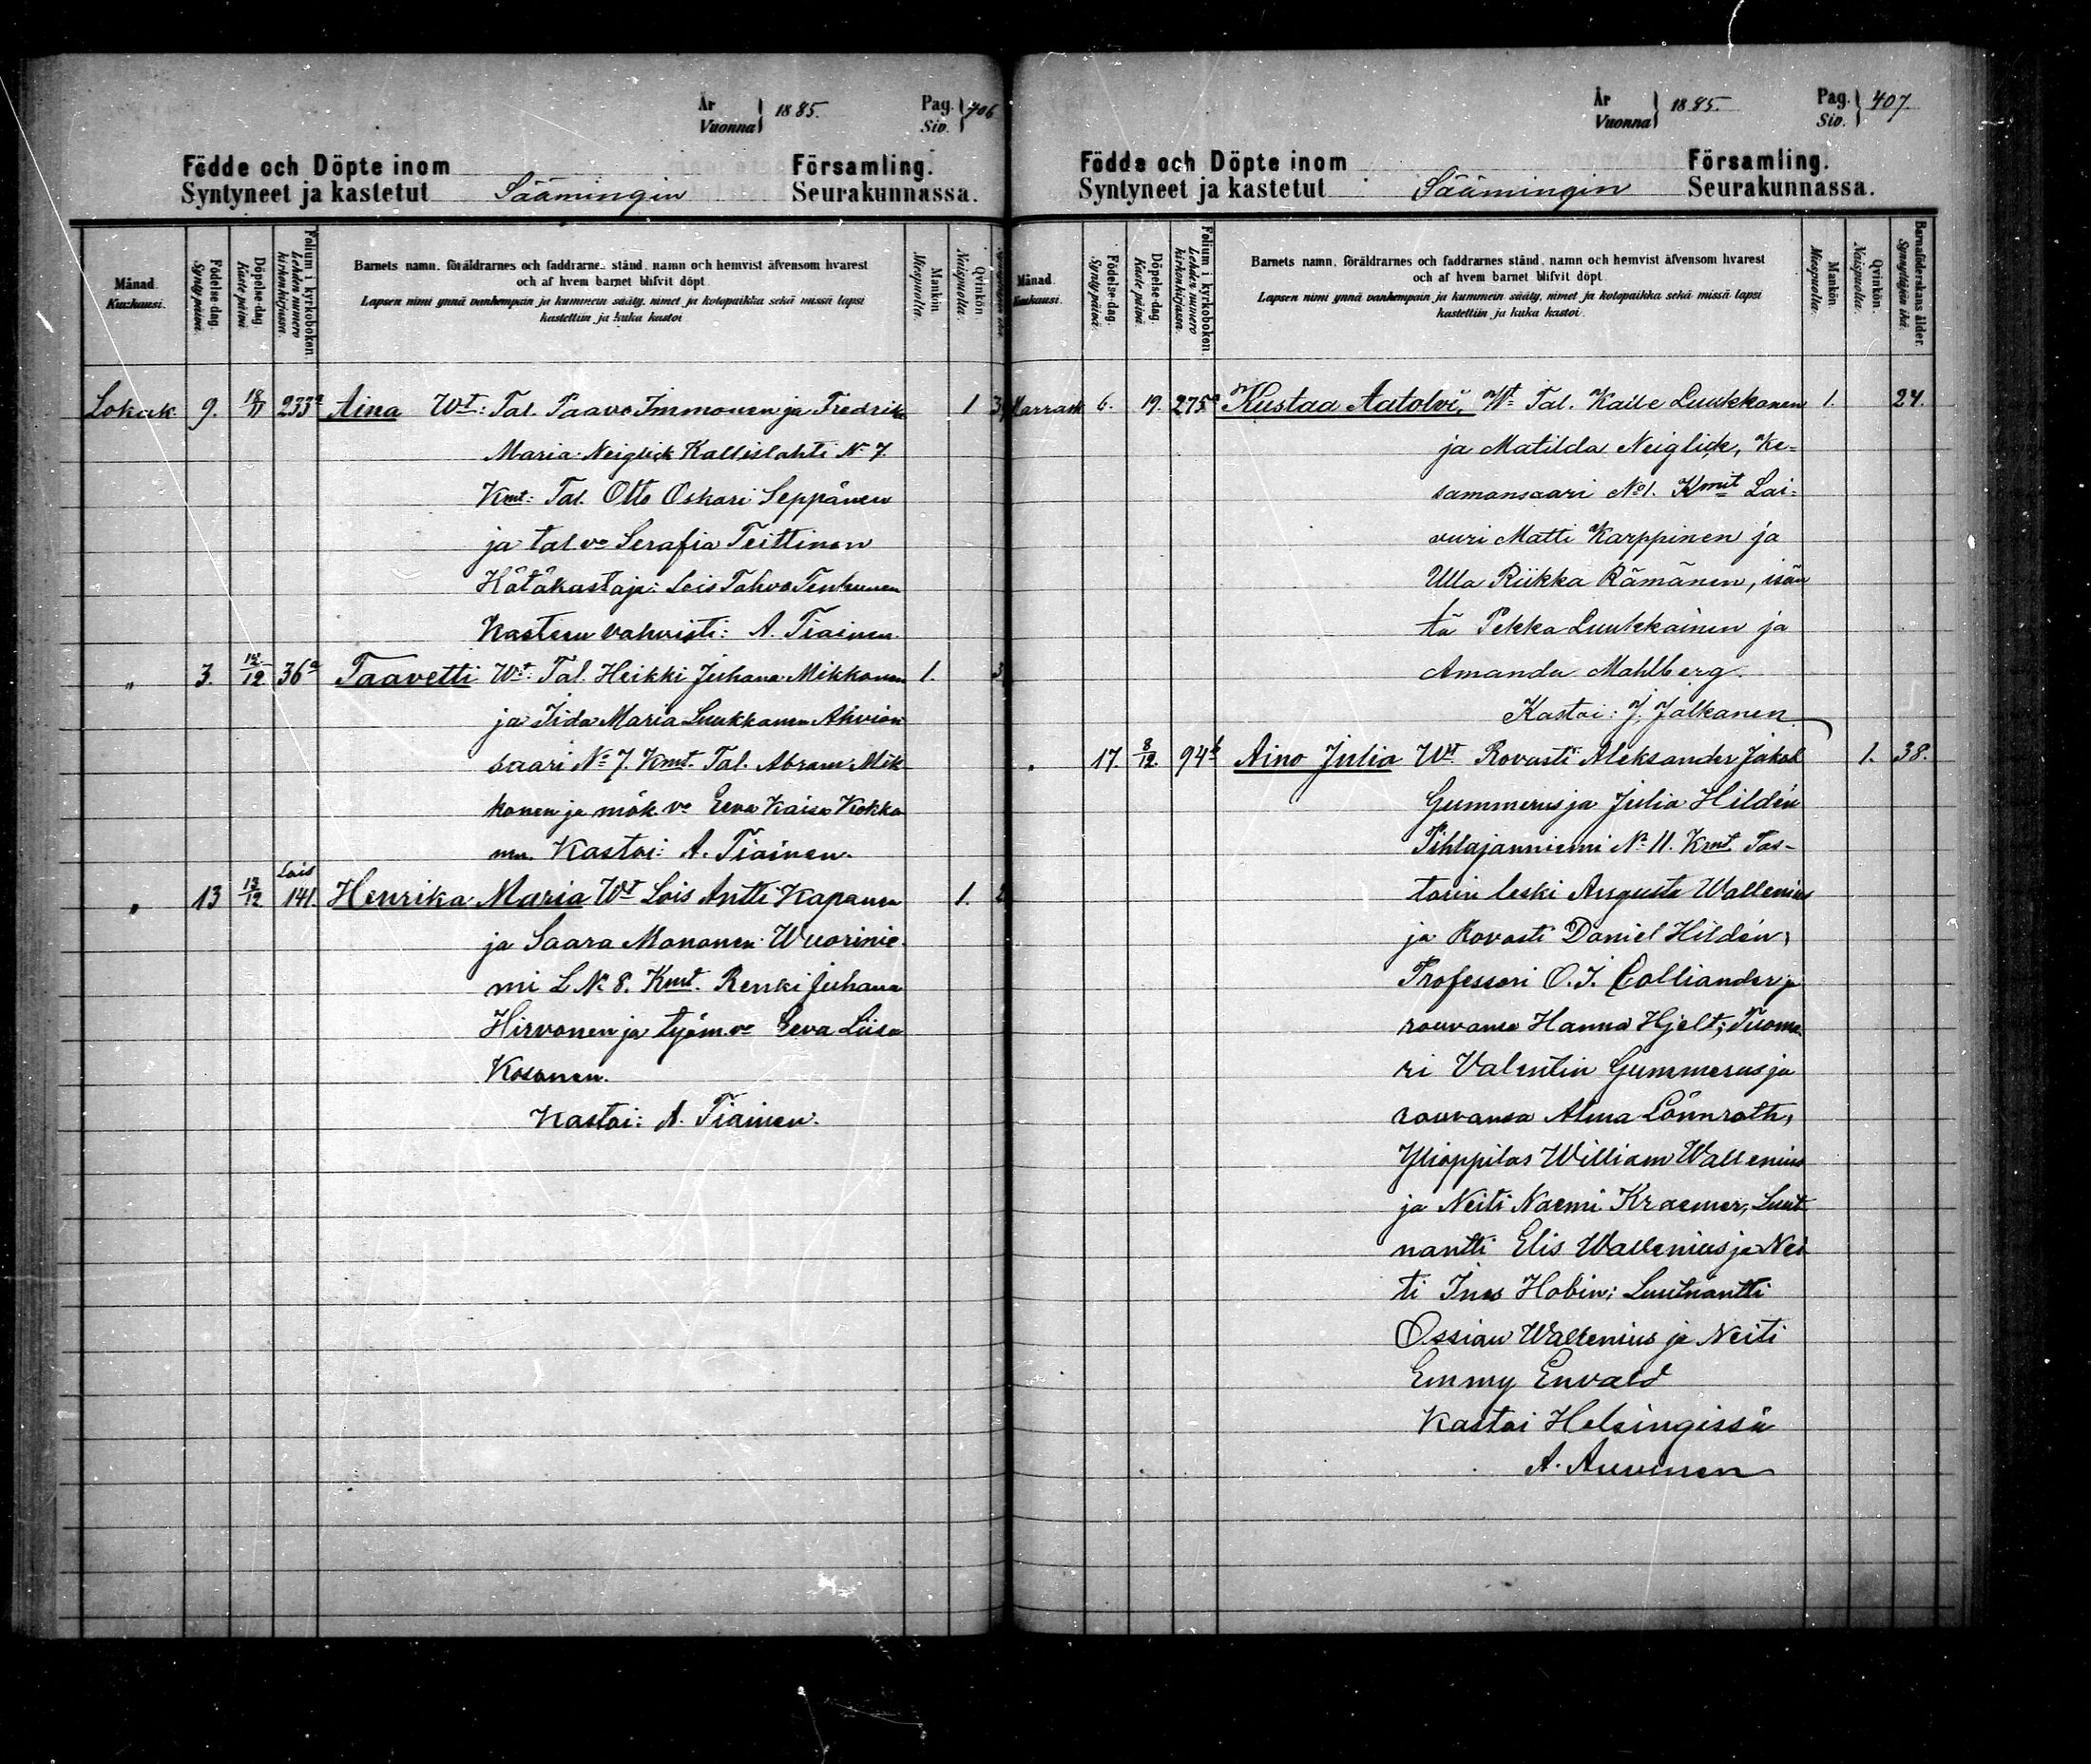 År
Vuonna } 1885.
Pag.
Siv. } 406
Födde och Döpte inom Församling.
Syntyneet ja kastetut Säämingin Seurakunnassa.
Månad.
Kuukausi.
Födelse dag.
Synty päivä.
Döpelse dag.
Kaste päivä.
Folium i kyrkoboken.
Lehden numero
kirkonkirjassa.
Barnets namn, föräldrarnes och faddrarnes stånd, namn och hemvist äfvensom hvarest
och af hvem barnet blifvit döpt.
Lapsen nimi ynnä vanhempain ja kummein sääty, nimet ja kotopaikka sekä missä lapsi
kastettiin ja kuka kastoi
Mankön.
Miespuolia.
Qvinkön
Naispuolia.
Lokak. 9. 18/11 233a Aina Wt: Tal. Paavo Immonen ja Fredrika 1
Maria Neiglick Kallislahti No 7.
Kmt: Tal. Otto Oskari Seppänen
ja tal. vo Serafia Teittinen
Hätäkastaja: Lois Tahvo Tenhunen
Kasteen vahvisti: A. Tiainen.
" 3. 12/12 36a Taavetti Wt: Tal. Heikki Juhana Mikkonen 1.
ja Iida Maria Luukkanen Ahvion
saari No 7. Kmt. Tal. Abram Mik
konen ja mök. vo Eeva Kaisa Kokko
nen. Kastoi: A. Tiainen.
Lois
" 13 12/12 141. Henrika Maria Wt Lois Antti Kapanen 1.
ja Saara Mononen Wuorinie
mi L No 8. Kmt. Renki Juhana
Hirvonen ja työm. vo Eeva Liisa
Kosonen.
Kastoi: A. Tiainen.
År
Vuonna } 1885.
Pag.
Siv. } 407
Födde och Döpte inom Församling.
Syntyneet ja kastetut Säämingin Seurakunnassa.
Månad.
Kuukausi.
Födelse dag.
Synty päivä.
Döpelse dag.
Kaste päivä.
Folium i kyrkoboken.
Lehden numero
kirkonkirjassa.
Barnets namn, föräldrarnes och faddrarnes stånd, namn och hemvist äfvensom hvarest
och af hvem barnet blifvit döpt.
Lapsen nimi ynnä vanhempain ja kummein sääty, nimet ja kotopaikka sekä missä lapsi
kastettiin ja kuka kastoi.
Mankön.
Miespuolia.
Qvinkön.
Naispuolia.
Barnaföderskans ålder.
Synnyttäjän ikä.
Marrask 6. 19. 275a Kustaa Aatolvi, Wt Tal. Kalle Luukkonen 1. 24.
ja Matilda Neiglick, Ke-
samonsaari No 1. Kmit Lai-
vuri Matti Karppinen ja
Ulla Riikka Rämänen, isän
tä Pekka Luukkainen ja
Amanda Mahlberg.
Kastoi: J. Jalkanen
" 17. 8/12. 94b Aino Julia Wt. Rovasti Aleksander Jakob 1. 38.
Gummerus ja Julia Hildén
Pihlajanniemi No 11. Kmt Pas-
torin leski Augusta Wallenius
ja Rovasti Daniel Hildén,
Professori O. I. Colliander ja
rouvansa Hanna Hjelt; Tuoma
ri Valentin Gummerus ja
rouvansa Alma Lönnroth,
Ylioppilas William Wallenius
ja Neiti Naemi Kraemer, Luut
nantti Elis Wallenius ja Nei
ti Ines Hobin; Luutnantti
Ossian Wallenius ja Neiti
Emmy Envald
Kastoi Helsingissä
A. Auvinen